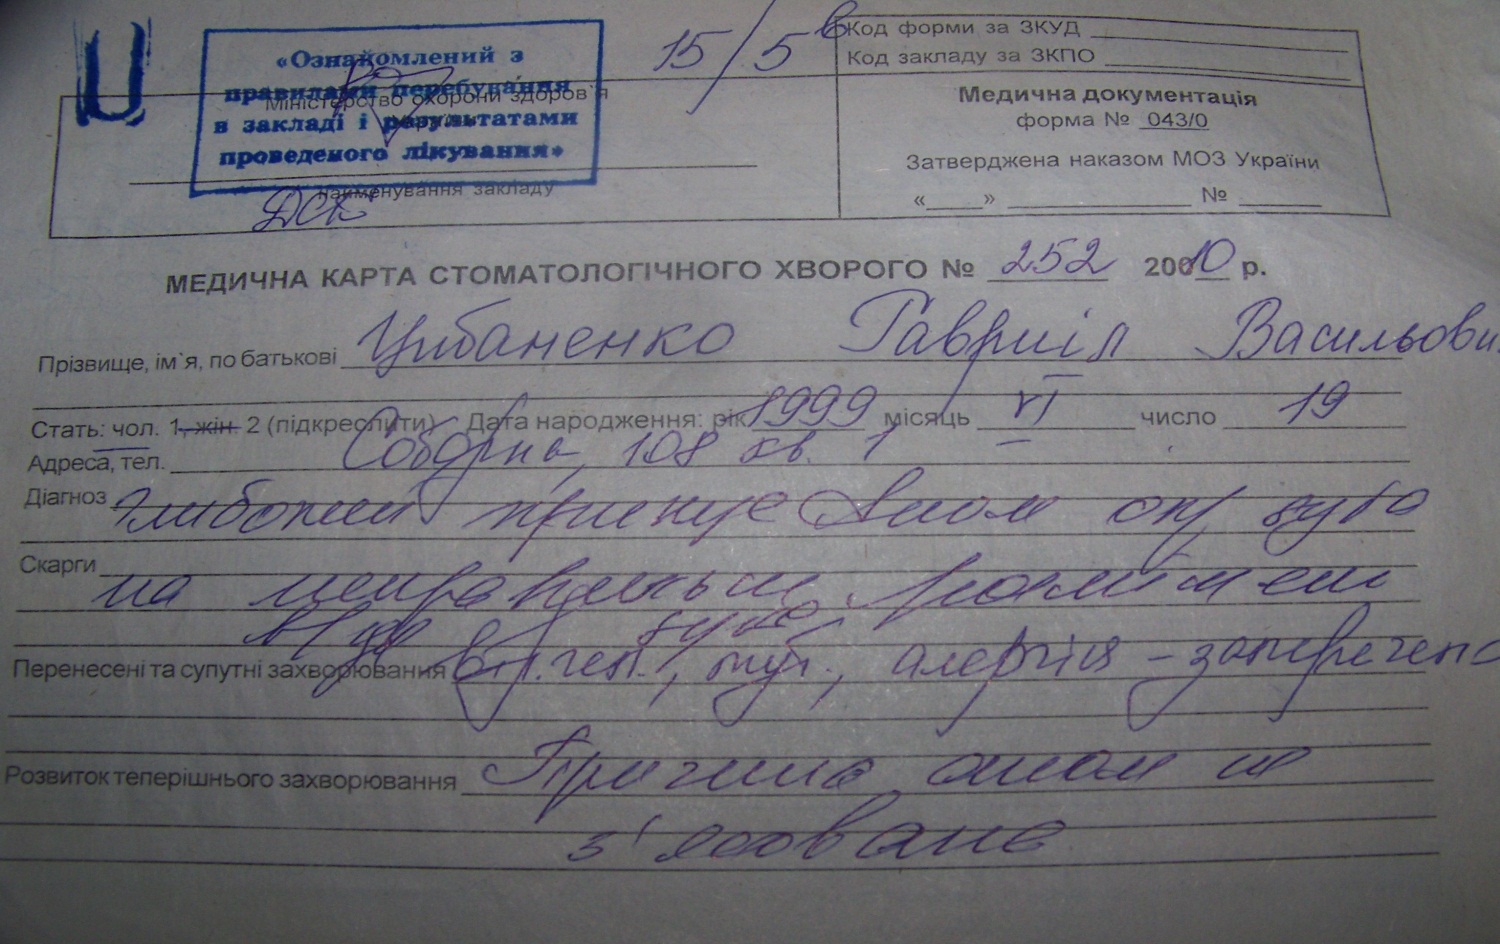 «Ознайомлений з
правилами перебування
в закладі і результатами
проведеного лікування»
15/5 в
Код форми за ЗКУД
Код закладу за ЗКПО
Міністерство охорони здоров`я
найменування закладу
Медична документація
форма № 043/0
Затверджена наказом МОЗ України
«____» ________ № ____
МЕДИЧНА КАРТА СТОМАТОЛОГІЧНОГО ХВОРОГО № 252 20010 р.
Прізвище, ім`я, по батькові Цибаненко Гавриїл Васильови
Стать: чол. 1, жін. 2 (підкреслити) Дата народження: рік 1999 місяць VI число 19
Адреса, тел. Соборна, 108 кв. 1
Діагноз Глибокий прикус Аном окр зубів
Скарги на неправильне
зубів
Перенесені та супутні захворювання геп., туб., алергія – заперечено
Розвиток теперішнього захворювання Причина аном не
з'ясована